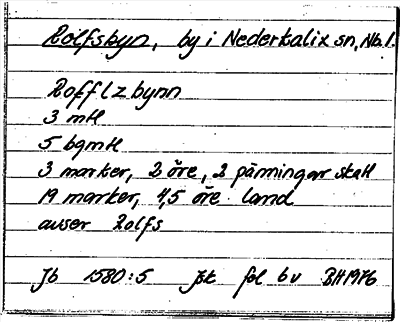 Rolfsbyn, by i Nederkalix sn, Nb.l.
Rofflzbynn
3 mtl
5 bgmtl
3 marker, 2 öre, 2 pänningar skatt
19 marker, 4,5 öre land
avser Rolfs
Jb 1580:5 Jsk fol 6v BH1976